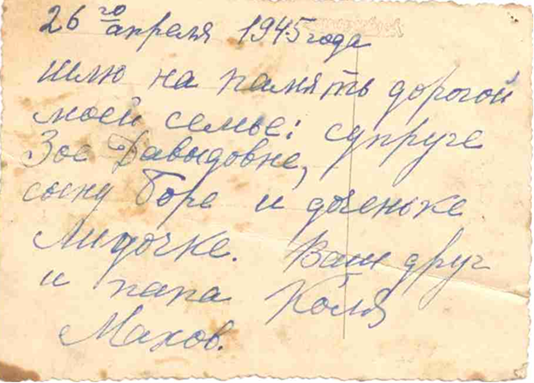 26го апреля 1945 года
шлю на память дорогой
моей семье: супруге
Зое Давыдовне,
сыну Боре и доченьке
Лидочке. Ваш друг
и папа Коля
Махов.